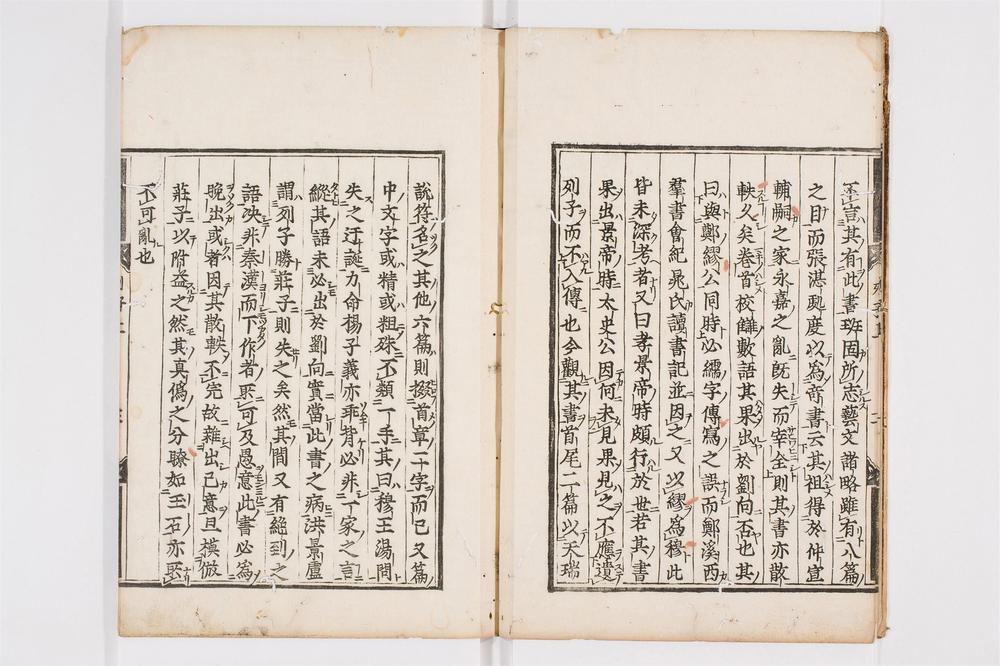 丕言其有此書班固所志藝文諸略雖有八篇
之目而張湛處度以爲奇書云其祖得於仲宣
輔嗣之家永嘉之亂既失而宰全則其書亦散
軼久矣卷首校讎數語其果出於劉向否也其
曰與鄭繆公同時必繻字傳寫之誤而鄭溪西
羣書會紀晁氏讀書記並因之又以繆爲穆此
皆未深考者又曰孝景帝時頗行於世若其書
果出景帝時太史公因何未見果見之不應遺
列子而不入傳也今觀其書首尾二篇以天瑞
說符名之其他六篇則掇首章二字而已又篇
中文字或精或粗殊不類一手其曰穆王湯問
失之迂誕力命楊子義亦乖背必非一家之言
縱其語未必出於劉向實當此書之病洪景盧
謂列子勝莊子則失之矣然其間又有絕到之
語決非秦漢而下作者所可及愚意此書必爲
晩出或者因其散軼不完故雜出己意且模倣
莊子以附益之然其真僞之分瞭如玉石亦所
不可亂也